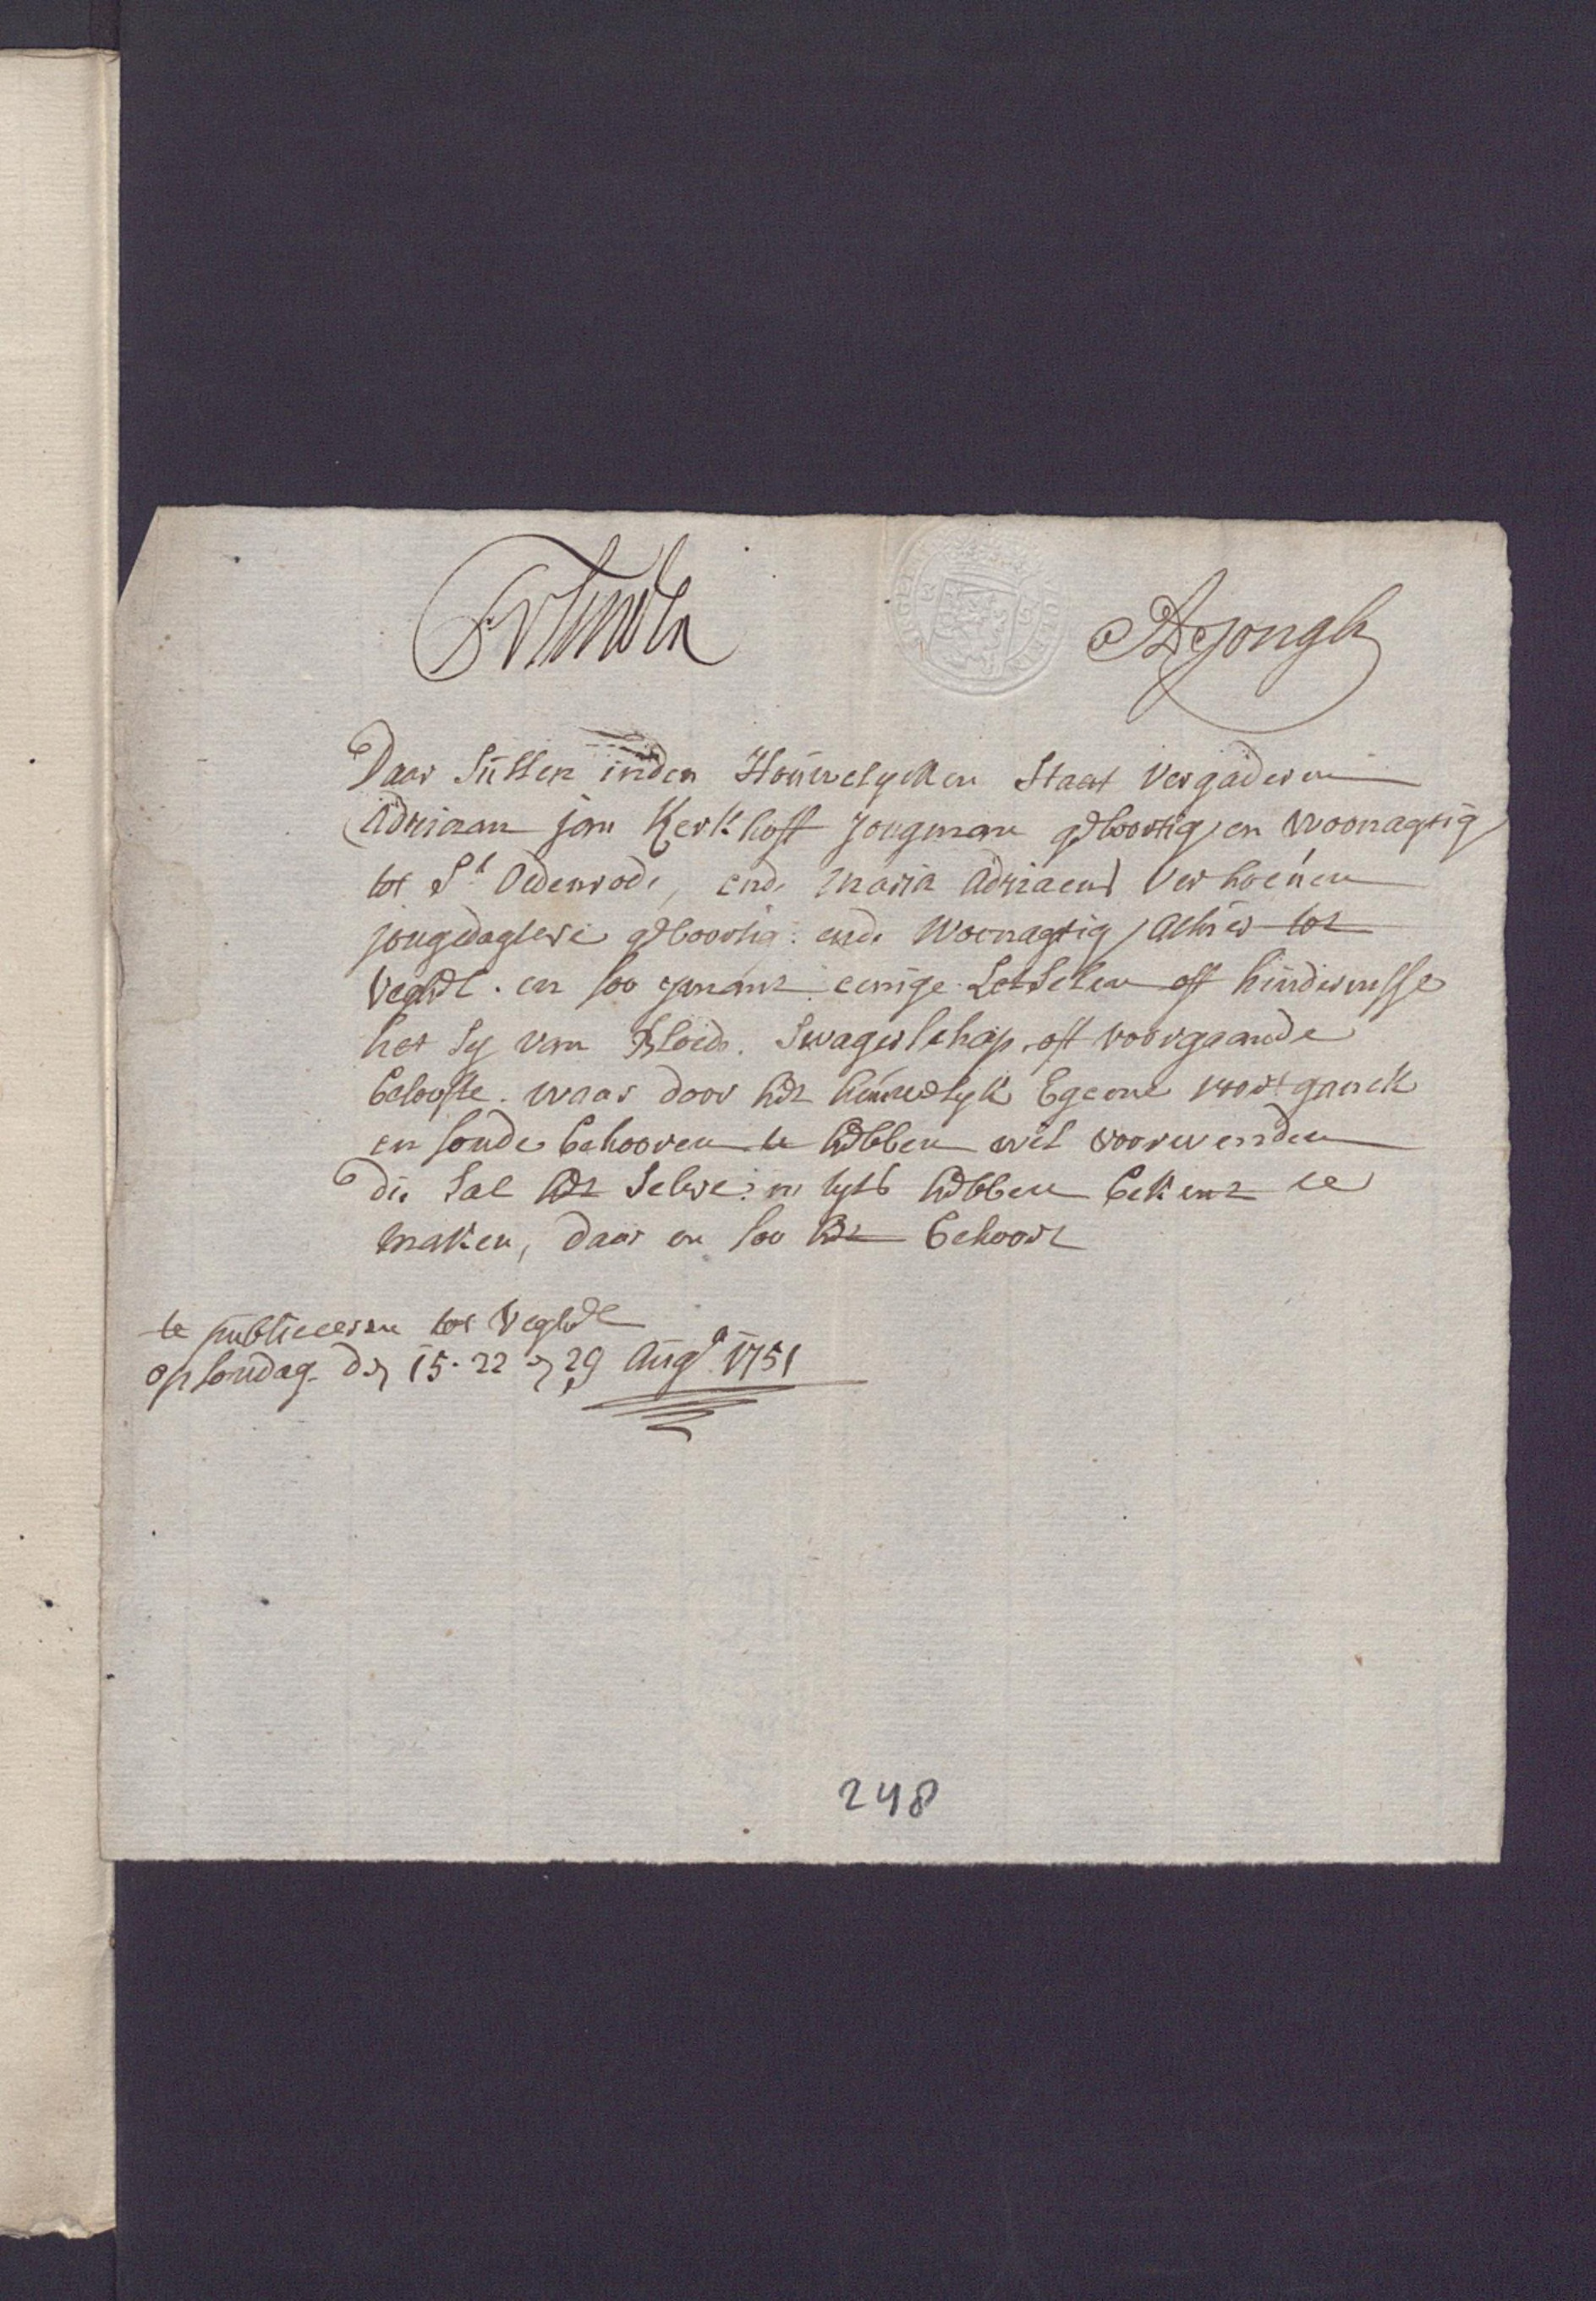 DeJongh
Daar Sullen inden Houwelycken Staat Vergaderen
Adriaan Jan Kerkhoff Jongman geboortig en woonagtig
tot St. Oedenrode, ende Maria Adriaens Verhoeven
jongedogtere geboortig ende Woonagtig Alhier tot
Veghel. en soo ymant eenige Letselen oft hindernisse
het sy van Bloed. Swagerschap oft voorgaande
belofte. waar door het heuwelyk Egeene voortganck
en soude behooren te hebben wil voorwenden
die sal het selve in tyts hebben bekent te
maken, daar en soo het behoort
te publiceeren tot Veghel
op sondag den 15. 22 en 29 Augt. 1751
248